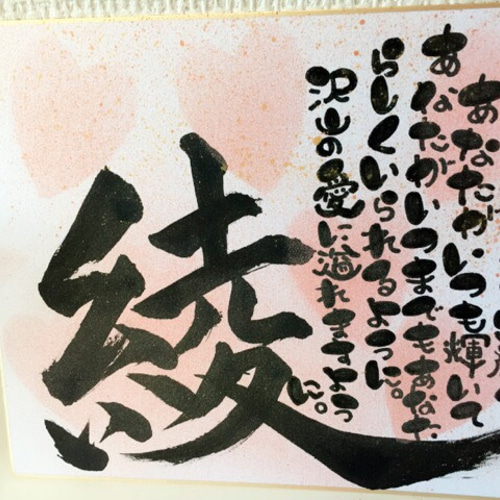 あなたがいつも輝いて
あなたがいつまでもあなた
らしくいられるように。
沢山の愛に溢れますように。
綾